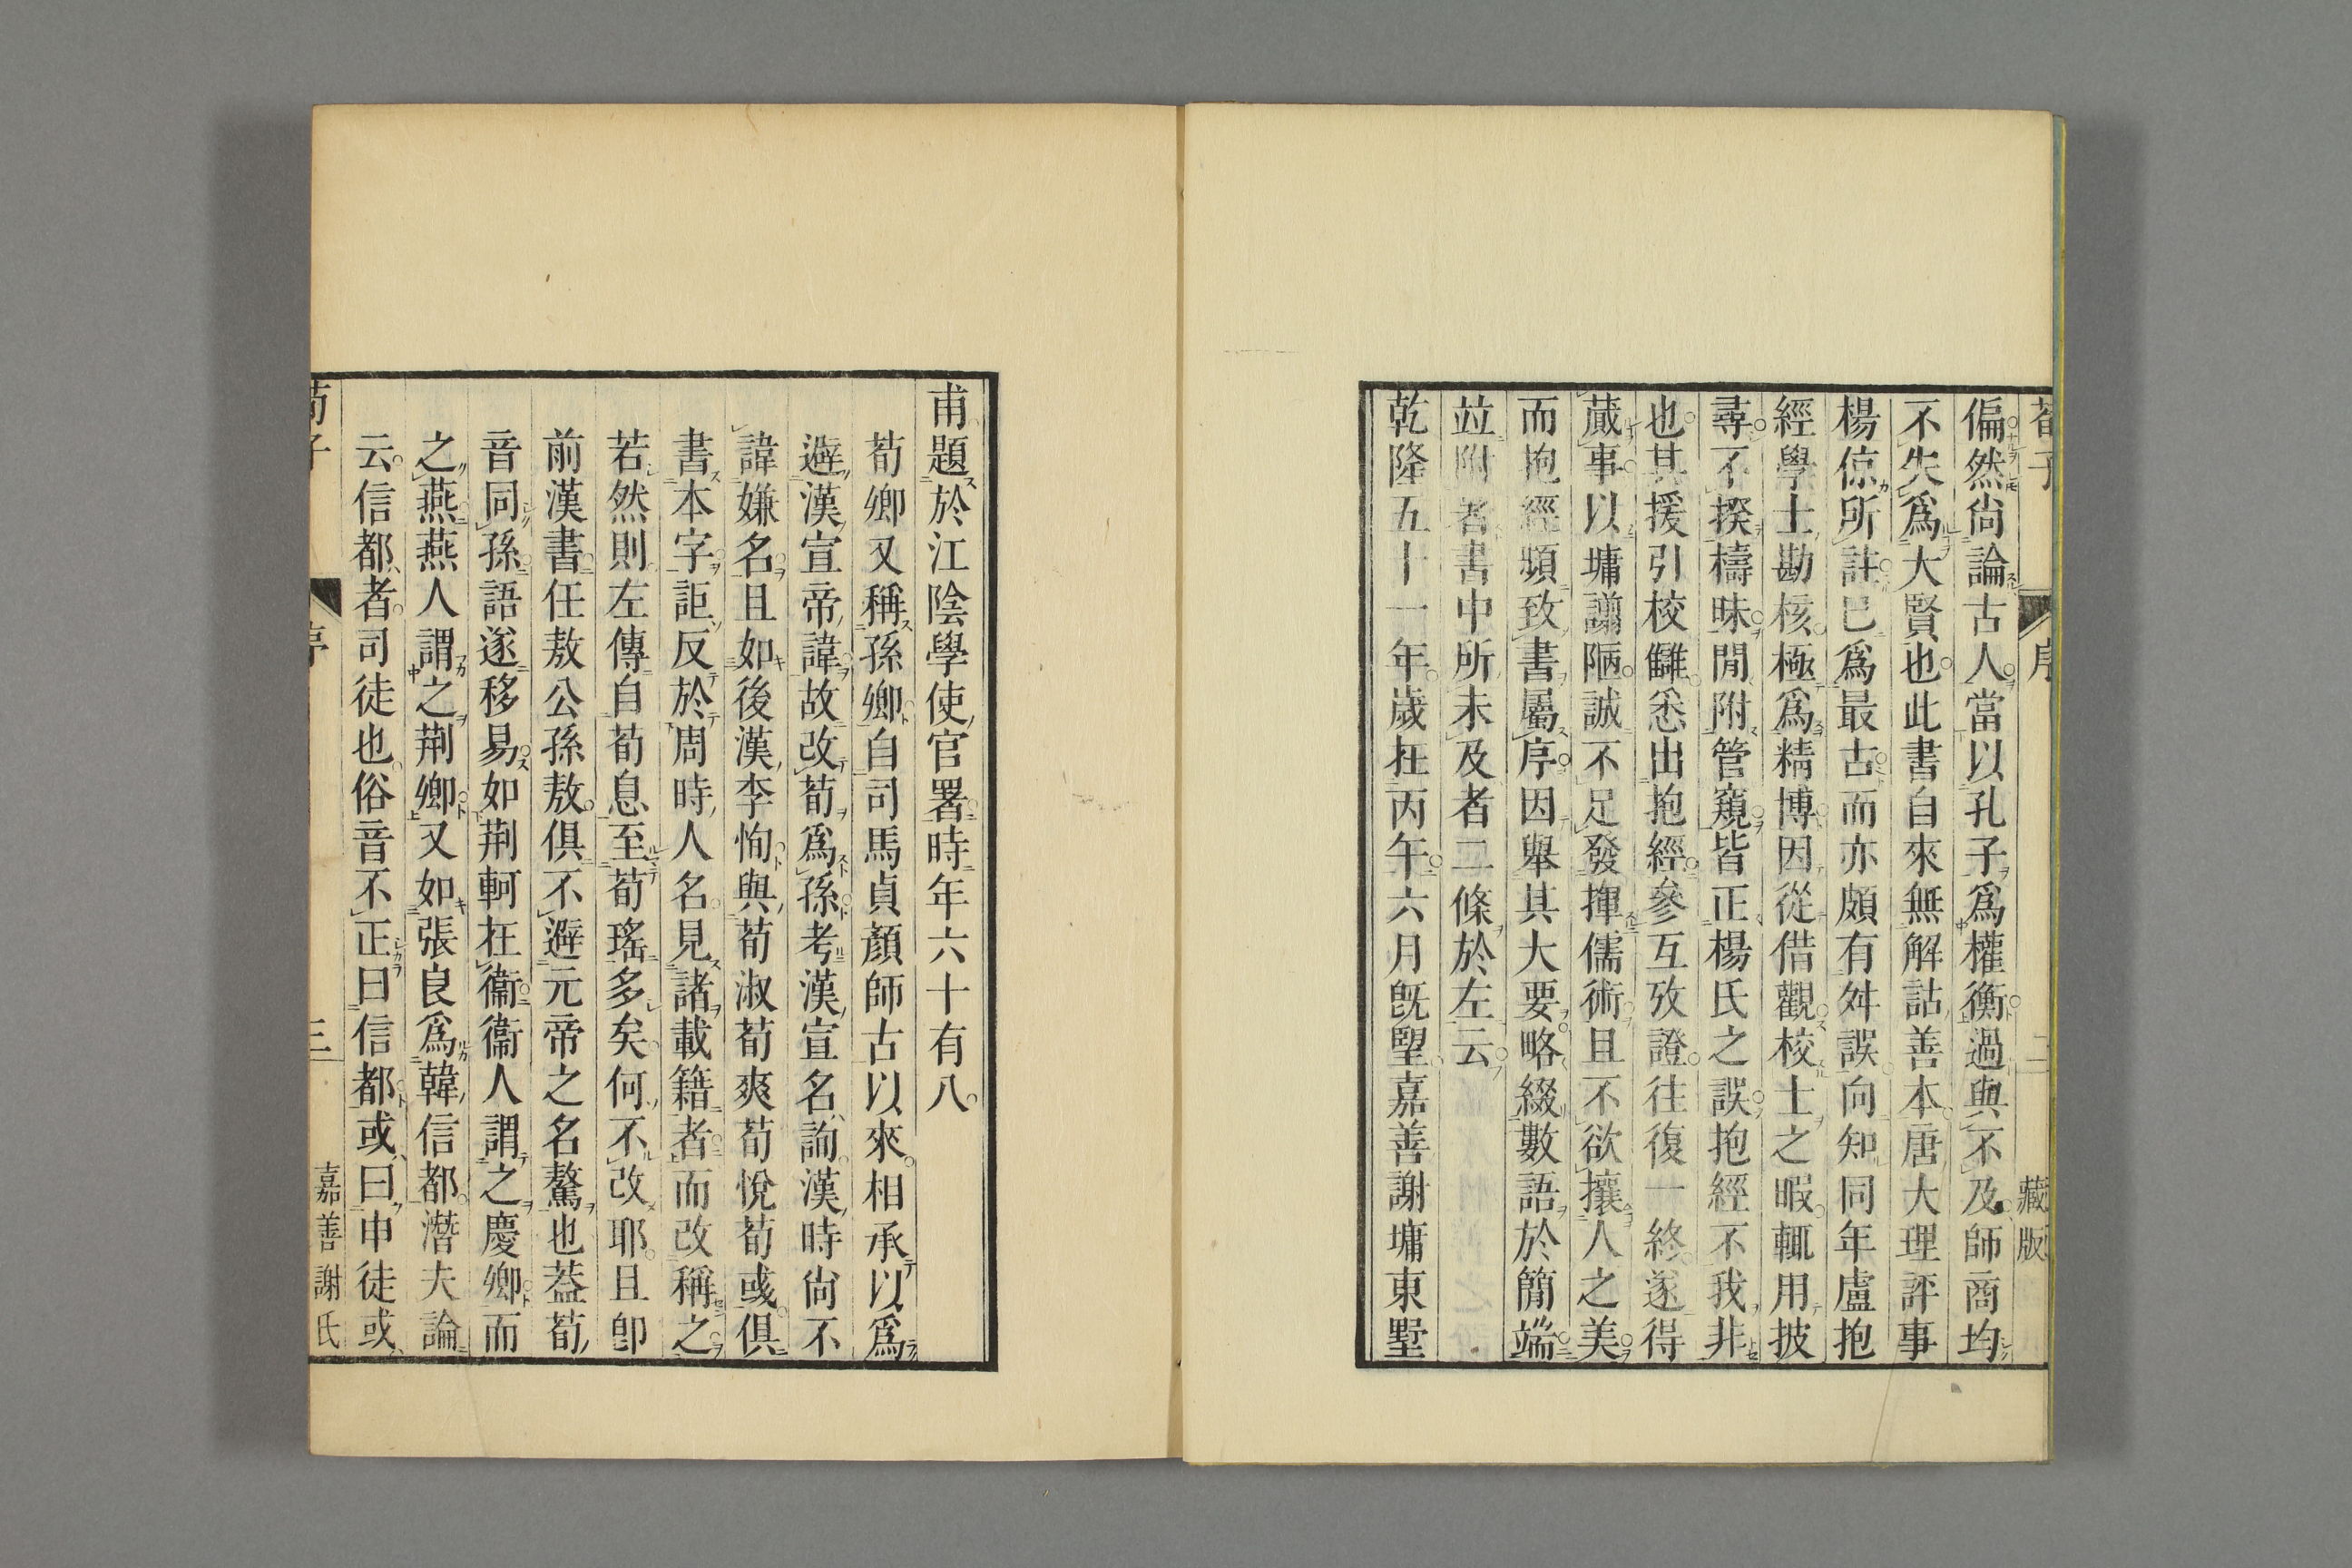 荀子 序 二 藏版
偏然尙論古人當以孔子爲權衡過與不及師商均
不失爲大賢也此書自來無解詁善本唐大理評事
楊倞所註已爲最古而亦頗有舛誤向知同年盧抱
經學士勘核極爲精博因從借觀校士之暇輒用披
尋不揆檮昧閒附管窺皆正楊氏之誤抱經不我非
也其援引校讎悉出抱經參互攷證往復一終遂得
蕆事以墉譾陋誠不足發揮儒術且不欲攘人之美
而抱經頻致書屬序因舉其大要略綴數語於簡端
竝附著書中所未及者二條於左云
乾隆五十一年歲在丙午六月旣望嘉善謝墉東墅
甫題於江陰學使官署時年六十有八
荀卿又稱孫卿自司馬貞顏師古以來相承以爲
避漢宣帝諱故改荀爲孫考漢宣名詢漢時尙不
諱嫌名且如後漢李恂與荀淑荀爽荀悅荀彧俱
書本字詎反於周時人名見諸載籍者而改稱之
若然則左傳自荀息至荀瑤多矣何不改耶且卽
前漢書任敖公孫敖俱不避元帝之名驁也蓋荀
音同孫語遂移易如荆軻在衞衞人謂之慶卿而
之燕燕人謂之荆卿又如張良爲韓信都潛夫論
云信都者司徒也俗音不正曰信都或曰申徒或
荀子 序 三 嘉善謝氏